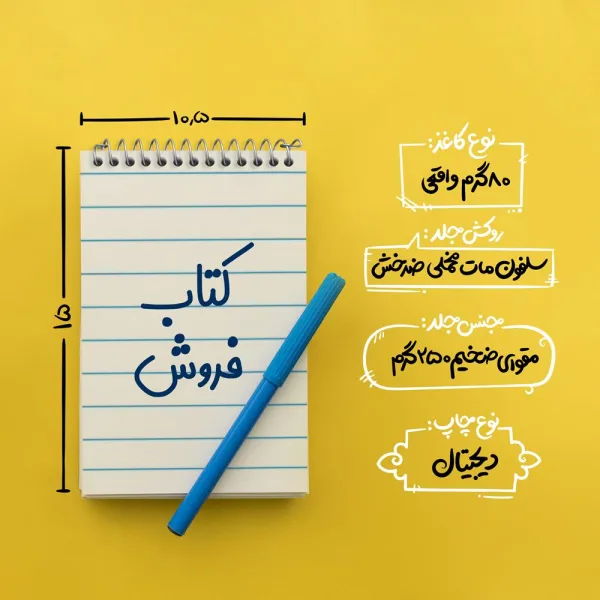 ۱۰٫۵
۱۵
کتاب
فروش
نوع کاغذ:
۸۰گرم واقعی
روکش جلد:
سلفون مات مخملی ضدخش
جنس جلد:
مقوای ضخیم ۲۵۰گرم
نوع چاپ:
دیجیتال